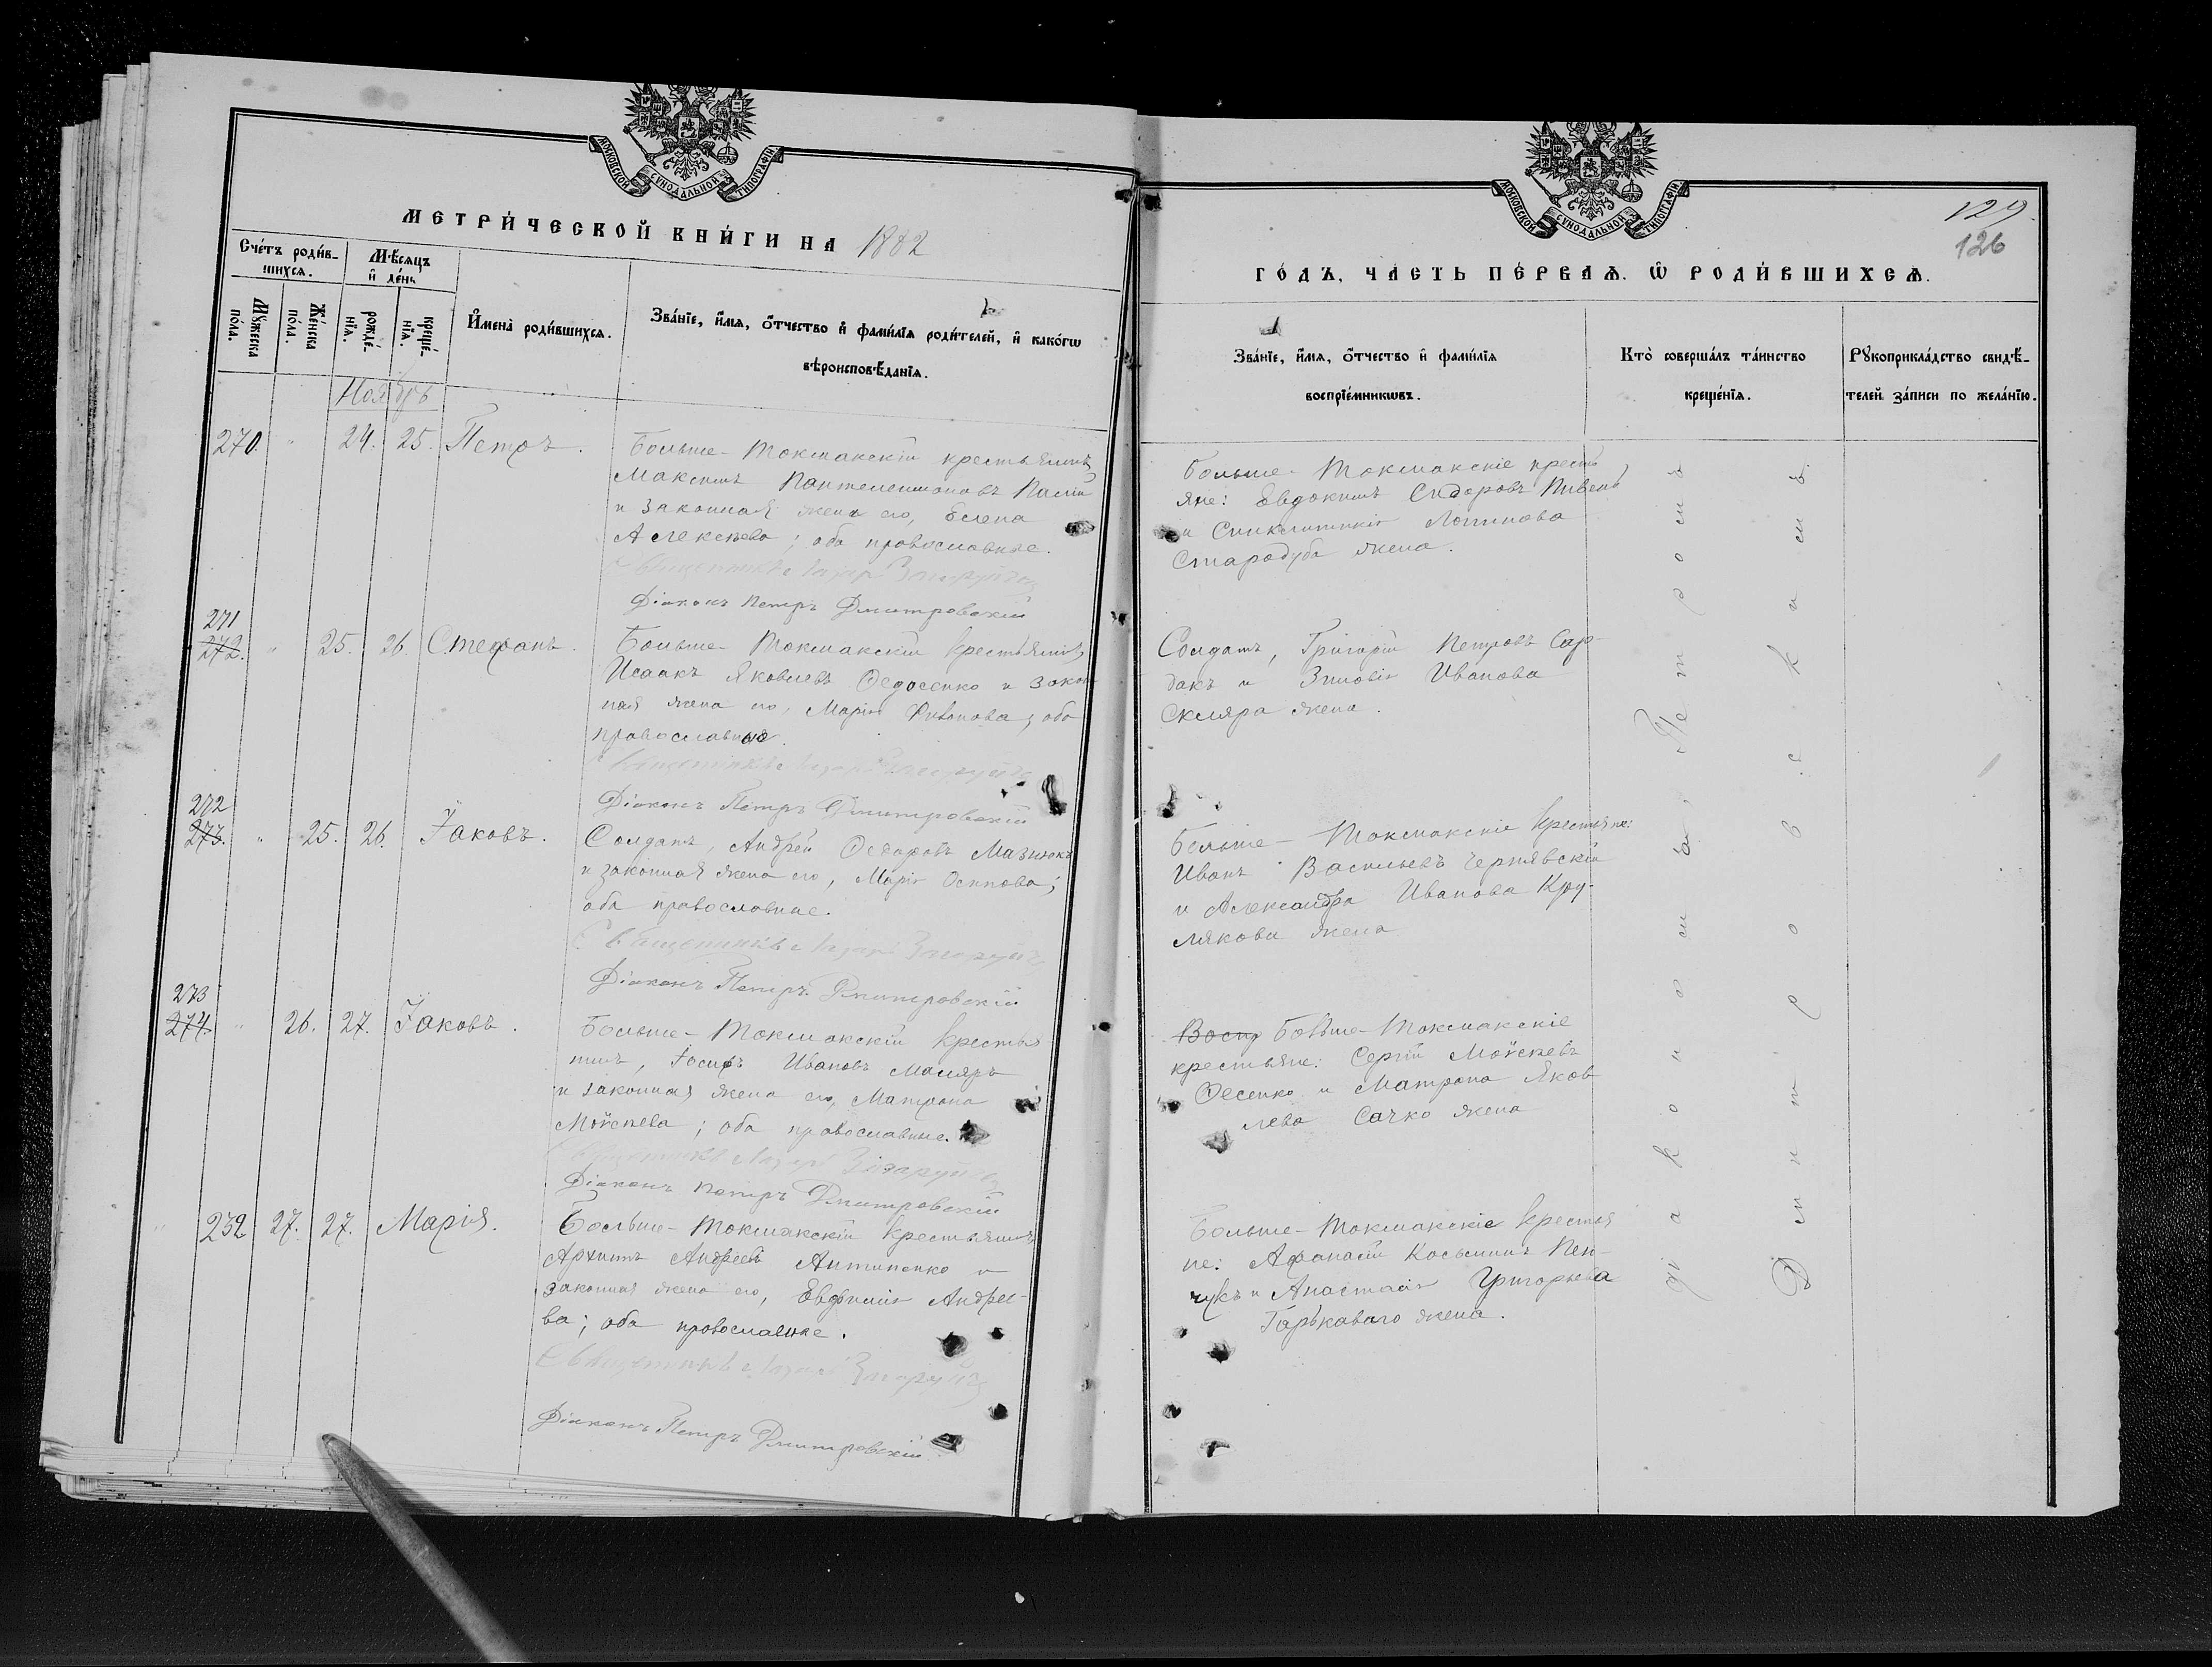 МОСКОВСКОЙ СѴНОДАЛЬНОЙ ТИПОГРАФІИ
МЕТРИ́ЧЕСКОЙ КНИ́ГИ НА 1882
Сче́тъ роди́в-
шихсѧ.
Мѣ́сѧцъ
и҆ де́нь
Мꙋ́жеска
по́ла.
Же́нска
по́ла.
рожде́-
нїѧ.
креще́-
нїѧ.
И҆мена̀ роди́вшихсѧ.
Зва́нїе, и҆́мѧ, ѻ҆́тчество и҆ фами́лїѧ роди́телей, и҆ како́гѡ
вѣроисповѣ́данїѧ.
Ноябрь
270. " 24. 25. Петръ.
Больше-Токмакскій крестьянинъ
Максимъ Пантелеимоновъ Палій
и законная жена его, Елена
Алексѣева; оба православные.
Священникъ
Діаконъ Петръ Дмитровскій
271
272. " 25. 26. Стефанъ.
Больше-Токмакскій крестьянинъ
Исаакъ Яковлевъ Ѳедосенко и закон
ная жена его, Марія Иванова; оба
православные.
Священникъ
Діаконъ Петръ Дмитровскій
272
273. " 25. 26. Іаковъ.
Солдатъ, Андрей Ѳедоровъ Мазнюкъ
и законная жена его, Марія Осипова;
оба православные.
Священникъ
Діаконъ Петръ Дмитровскій
273
274. " 26. 27. Іаковъ.
Больше-Токмакскій крестья
нинъ, Іосифъ Ивановъ Маляръ
и законная жена его, Матрона
Моѵсеева; оба православные.
Священникъ
Діаконъ Петръ Дмитровскій
" 232 27. 27. Марія.
Больше-Токмакскій крестьянинъ
Архипъ Андреевъ Антипенко и
законная жена его, Евфимія Андрее-
ва; оба православные.
Священникъ
Діаконъ Петръ Дмитровскій
МОСКОВСКОЙ СѴНОДАЛЬНОЙ ТИПОГРАФІИ
129.
126
ГО́ДЪ, ЧА́СТЬ ПЕ́РВАѦ. Ѡ҆ РОДИ́ВШИХСѦ.
Зва́нїе, и҆́мѧ, ѻ҆́тчество и҆ фами́лїѧ
воспрїе́мникѡвъ.
Кто̀ соверша́лъ та́инство
креще́нїѧ.
Рꙋкоприкла́дство свидѣ́-
телей за́писи по жела́нїю.
Больше-Токмакскіе кресть
яне: Евдокимъ Сидоровъ Пивень
и Синклитикія Логинова
Стародуба жена.
Солдатъ, Григорій Петровъ Сар-
дакъ и Зиновія Иванова
Скляра жена.
Больше-Токмакскіе крестьяне:
Иванъ Васильевъ Чернявскій
и Александра Иванова Кру-
лякова жена
Воспр Больше-Токмакскіе
крестьяне: Сергій Моѵсеевъ
Ѳесенко и Матрона Яков
лева Сачко жена
Больше-Токмакскіе крестья
не: Афанасій Косьминъ Пен-
чукъ и Анастасія Григорьева
Гарькаваго жена.
діакономъ Петромъ
Дмитровскимъ.